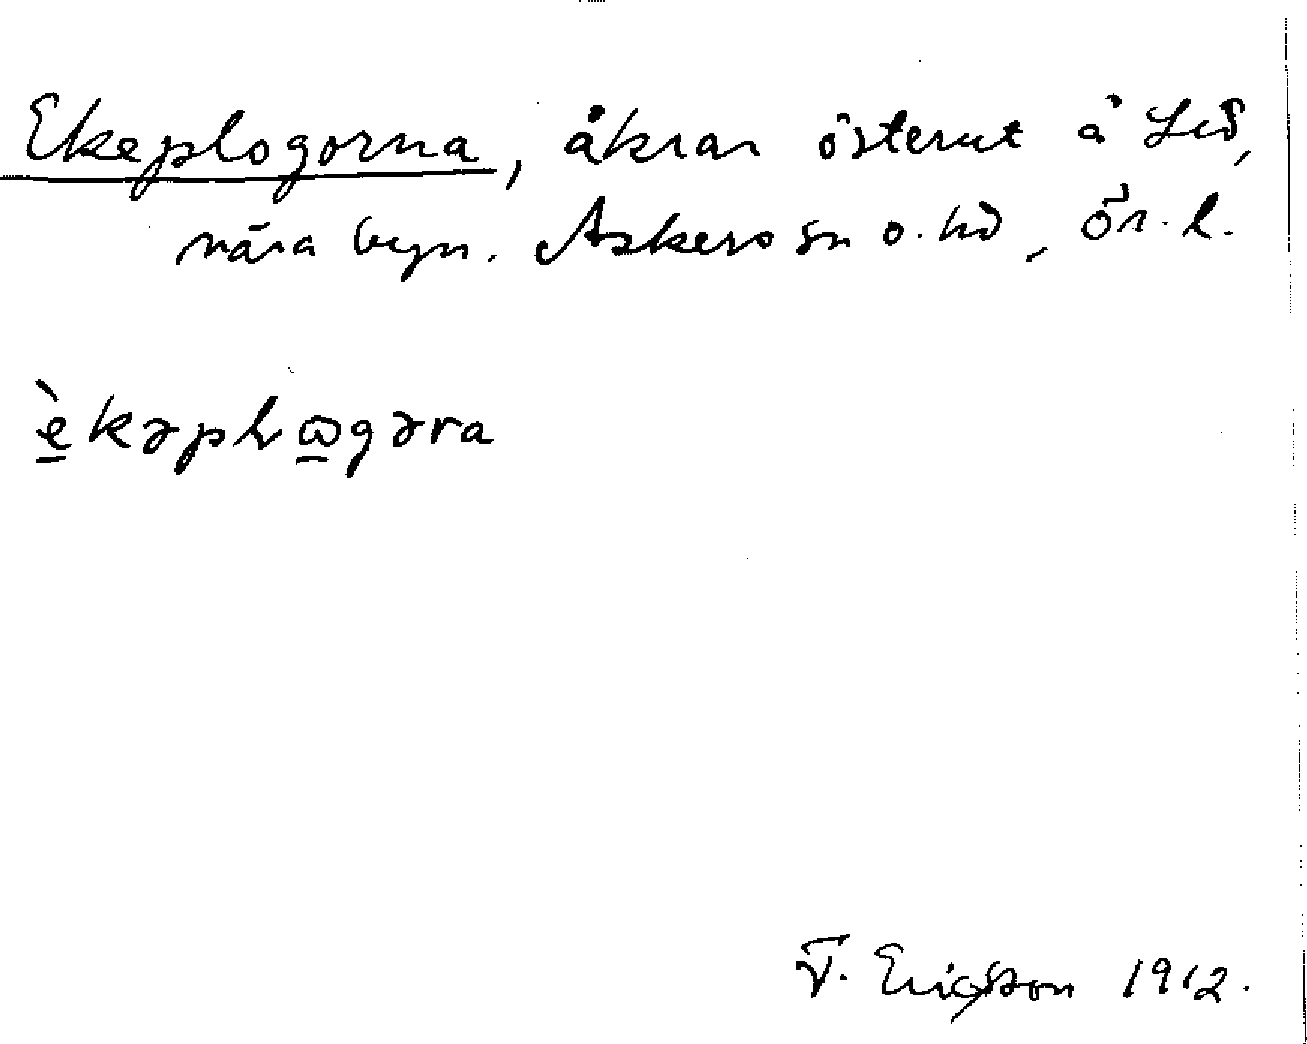 Ekeplogorna, åkrar österut å Led,
nära byn. Askers sn o. hd, Ör. l.
è̱kəplω̱gəra
T. Ericsson 1912.